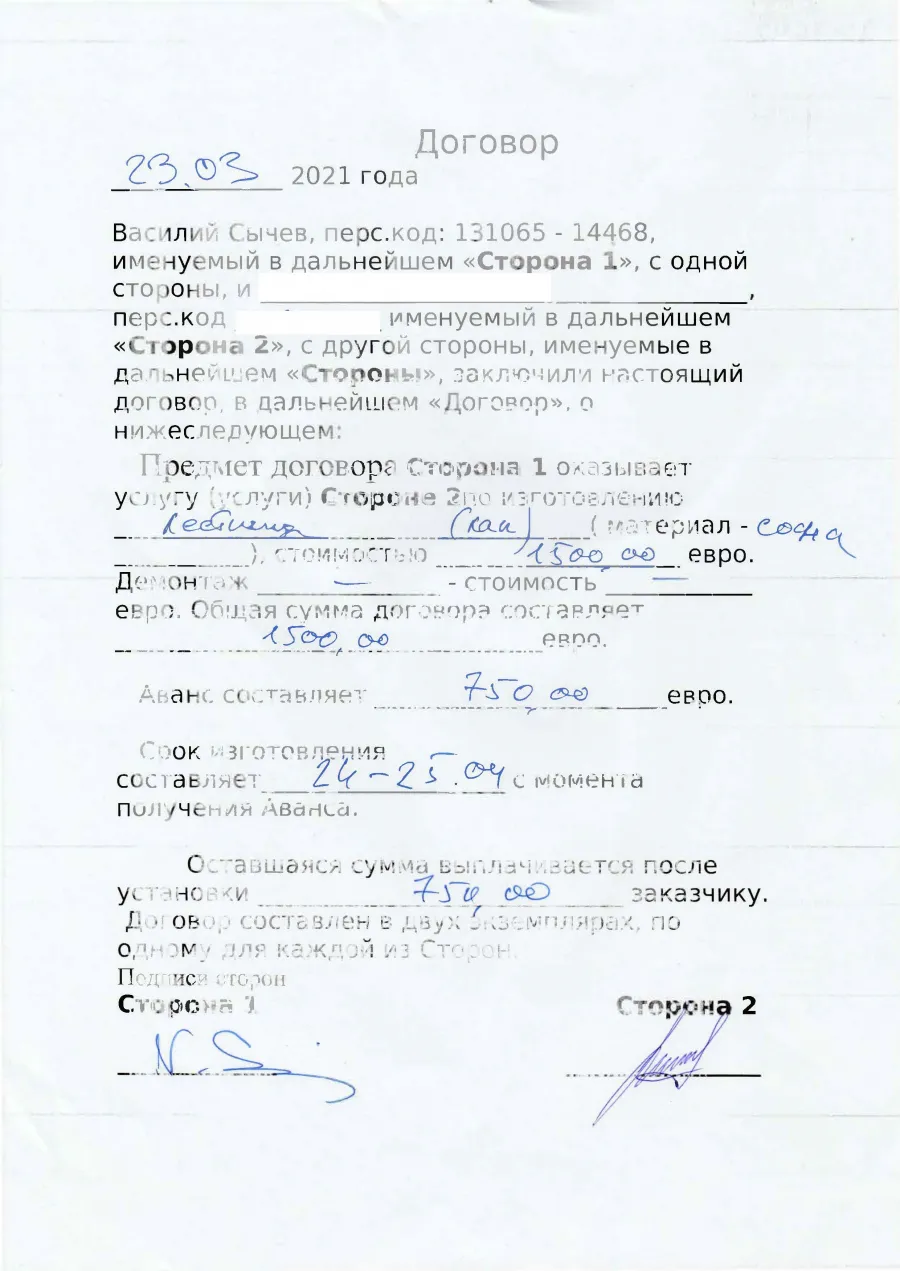 Договор
23.03 2021 года
Василий Сычев, перс.код: 131065 - 14468,
именуемый в дальнейшем «Сторона 1», с одной
стороны, и ,
перс.код , именуемый в дальнейшем
«Сторона 2», с другой стороны, именуемые в
дальнейшем «Стороны», заключили настоящий
договор, в дальнейшем «Договор», о
нижеследующем:
Предмет договора Сторона 1 оказывает
услугу (услуги) Стороне 2по изготовлению
Лестница ( материал - сосна
), стоимостью 1500,00 евро.
Демонтаж — - стоимость —
евро. Общая сумма договора составляет
1500,00 евро.
Аванс составляет 750,00 евро.
Срок изготовления
составляет 24-25.04 с момента
получения Аванса.
Оставшаяся сумма выплачивается после
установки 750,00 заказчику.
Договор составлен в двух экземплярах, по
одному для каждой из Сторон.
Подписи сторон
Сторона 1 Сторона 2